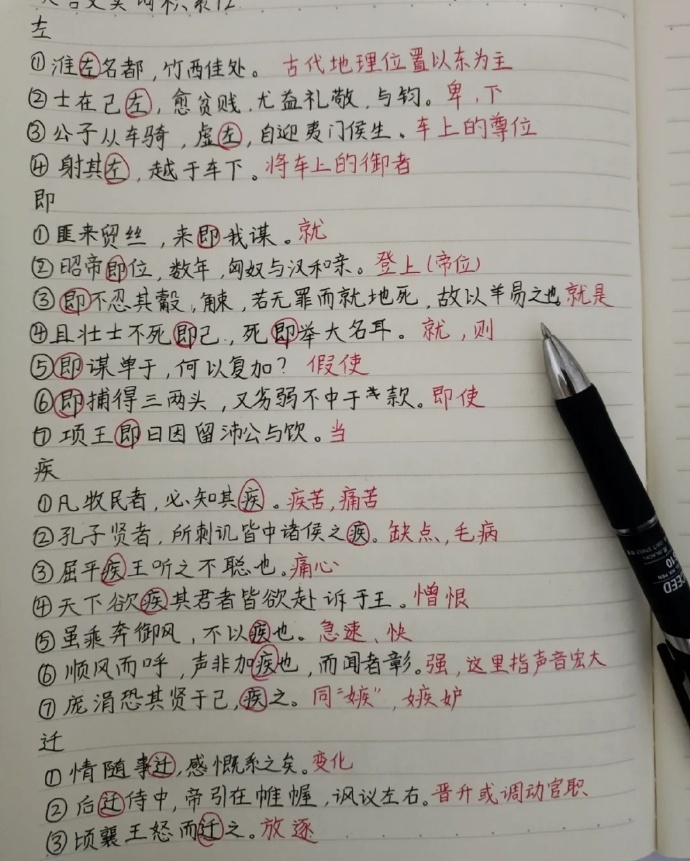 左
①淮左名都,竹西佳处。 古代地理位置以东为主
②士在己左,愈贫贱,尤益礼敬,与钧。卑,下
③公子从车骑,虚左,自迎夷门侯生、车上的尊位
④射其左,越于车下。将车上的御者
即
①匪来贸丝,来即我谋。就
②昭帝即位,数年,匈奴与汉和亲。登上(帝位)
③即不忍其觳觫,若无罪而就地死,故以羊易之也。就是
④且壮士不死即已,死即举大名耳。就,则
⑤即谋单于,何以复加? 假使
⑥即捕得三两头,又劣弱不中于款。即使
⑦项王即日因留沛公与饮。当
疾
①凡牧民者,必知其疾。疾苦,痛苦
②孔子贤者,所刺讥皆中诸侯之疾。缺点,毛病
③屈平疾王听之不聪也。痛心
④天下欲疾其君者皆欲赴诉于王。憎恨
⑤虽乘奔御风,不以疾也。急速、快
⑥顺风而呼,声非加疾也,而闻者彰。强,这里指声音宏大
⑦庞涓恐其贤于己,疾之。同"嫉",嫉妒
迁
①情随事迁,感慨系之矣。变化
②后迁侍中,帝引在帷幄,讽议左右。晋升或调动官职
③顷襄王怒而迁之。放逐